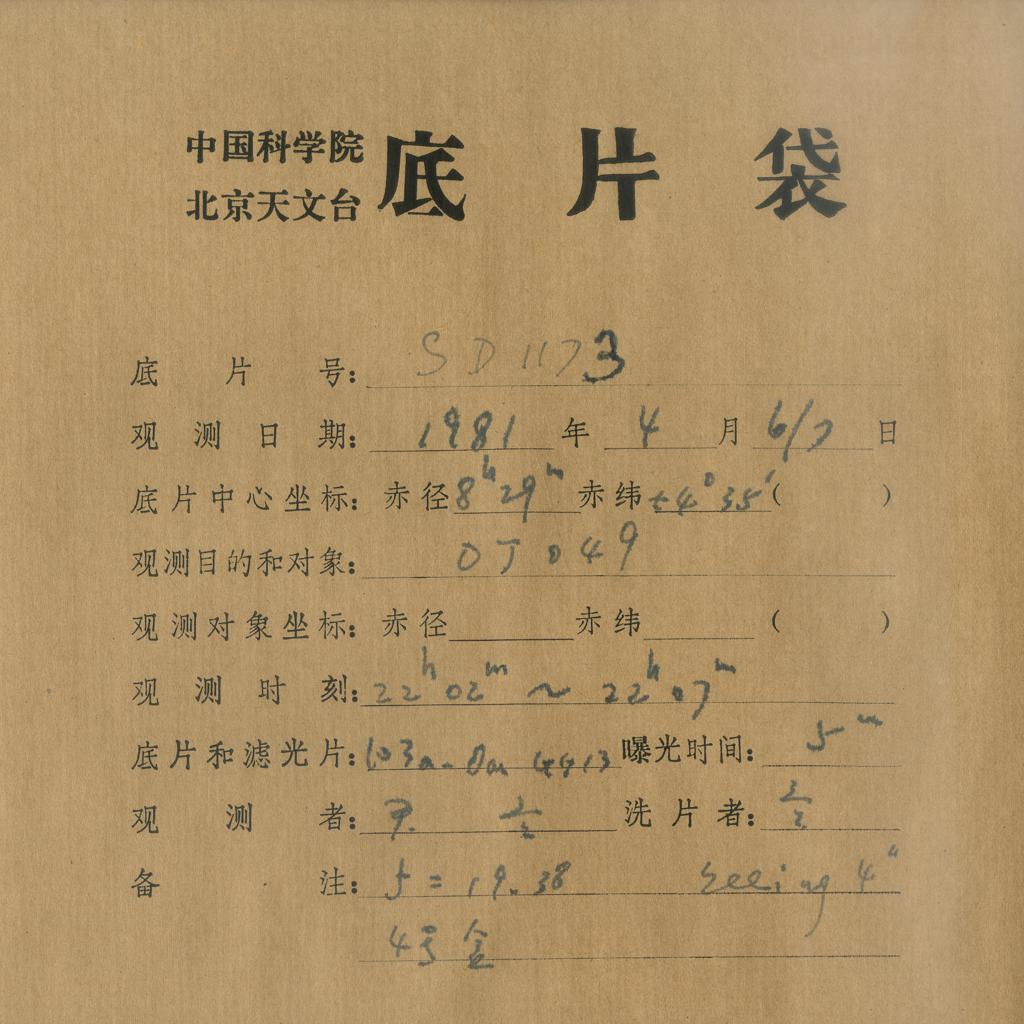 中国科学院
北京天文台
底片袋
底片号: SD1173
观测日期: 1981年4月6/7日
底片中心坐标: 赤径8ʰ29ᵐ赤纬+4°35′( )
观测目的和对象: OJ049
观测对象坐标: 赤径 赤纬 ( )
观测时刻: 22ʰ02ᵐ~22ʰ07ᵐ
底片和滤光片: 103a-O 4413 曝光时间: 5ᵐ
观测者: 洗片者:
备注: f=19.38 seeing 4″
4号盒